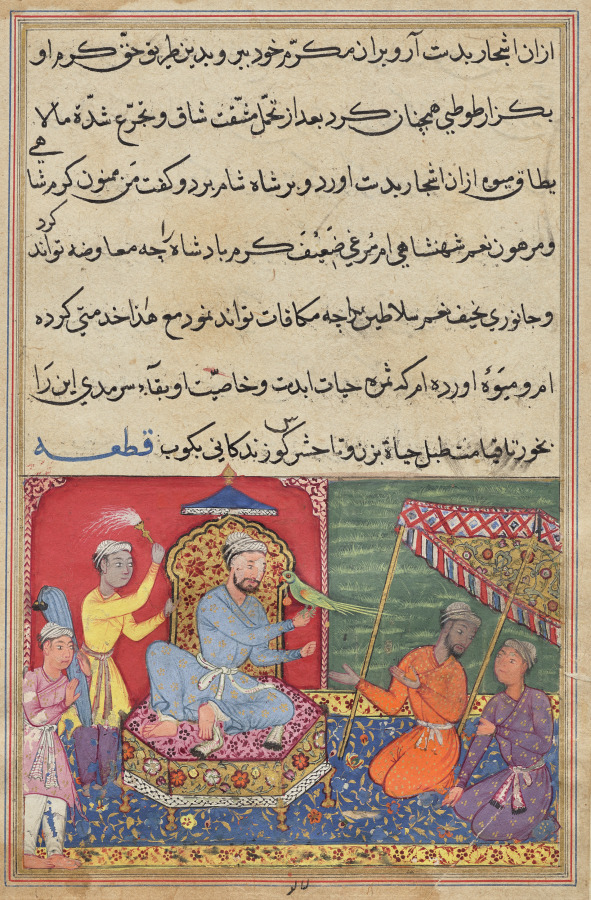 ازان اشجار بدست آرو بران مکرمه خود ببر و بدین طریق حق کرم او
بگزار طوطی همچنان کرد بعد از تحمل مشقت شاق و تجرع شدة مالا
هی
یطاق میوه ازان اشجار بدست اورد و بر شاه شام برد و کفت من ممنون کرم شا
کرد
و مرهون نعم شهنشاهی ام مرغی ضعیف کرم بادشاه را چه معاوضه تواند
و جانوری نحیف نعم سلاطین را چه مکافات تواند نمود مع هذا خدمتی کرده
ام و میوۀ اورده ام که ثمره حیات ابدت و خاصیت او بقاء سرمدی این را
بخور تا قیامت طبل حیاة بزن و تا حشر کوس زندکانی بکوب قطعه